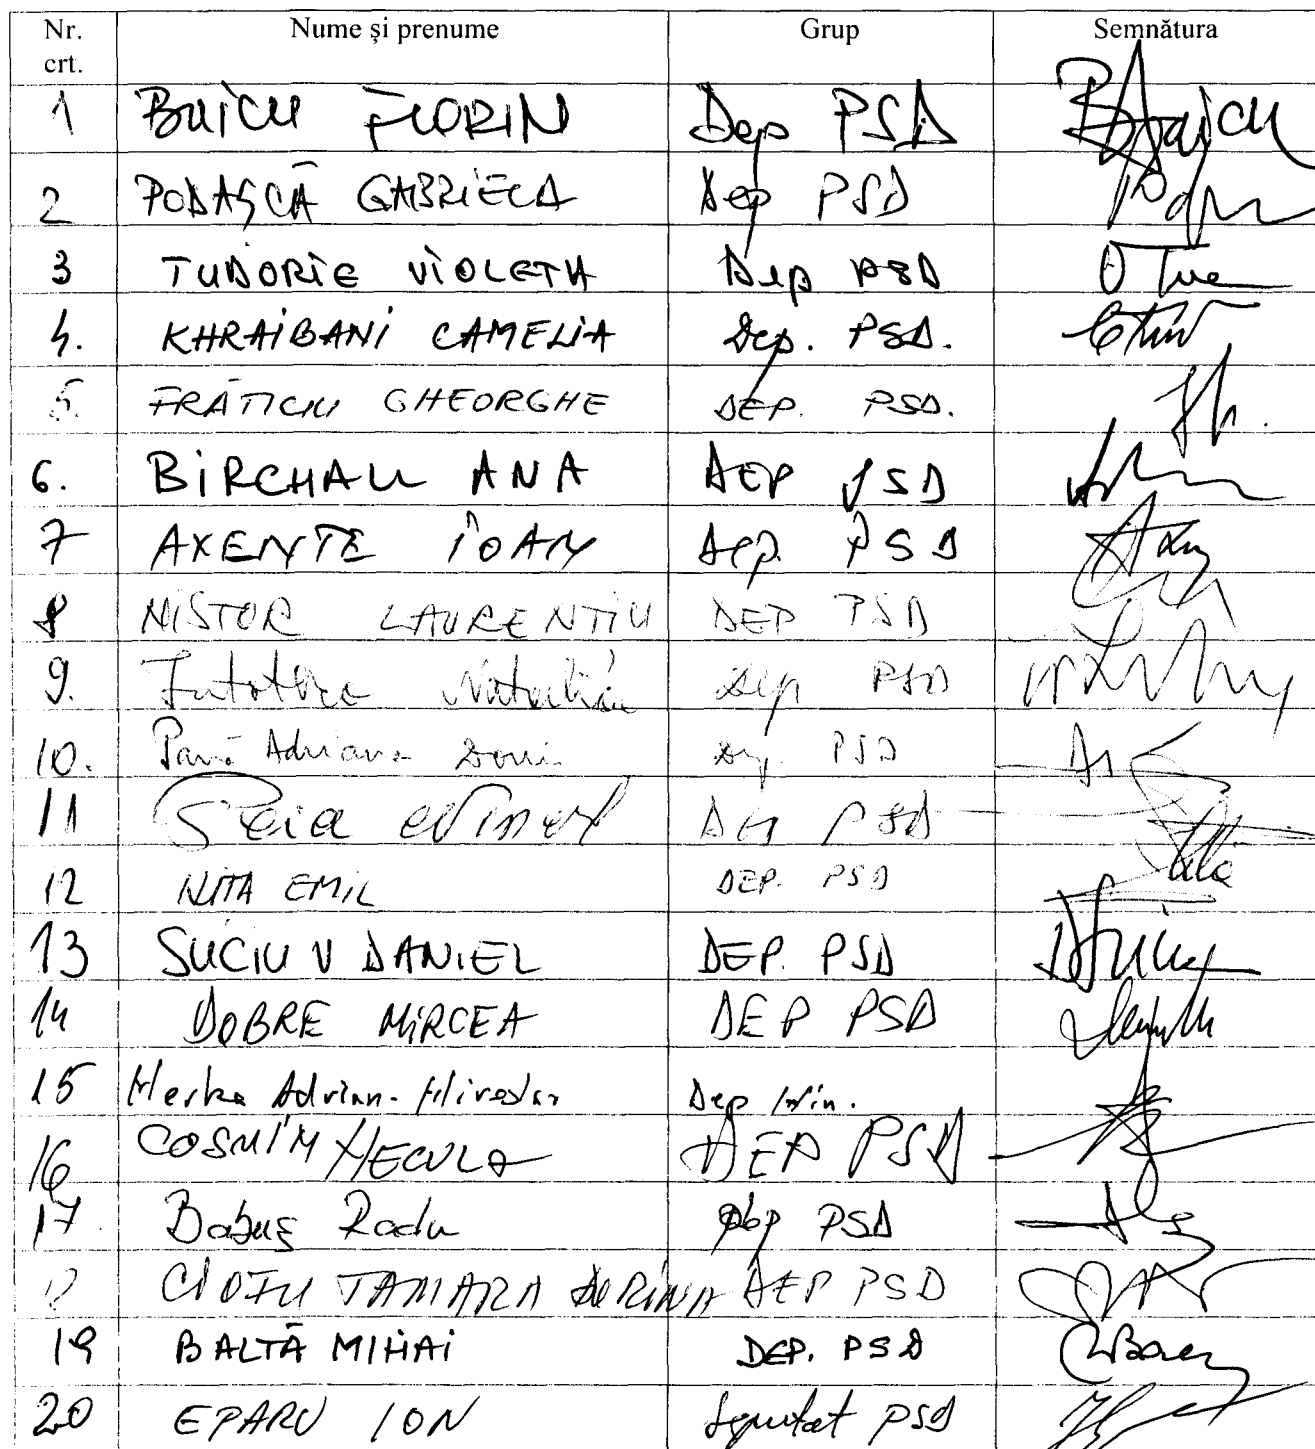 Nr. crt. Nume și prenume Grup Semnătura
1 BUICU FLORIN Dep PSD
2 PODAȘCĂ GABRIELA Dep PSD
3 TUDORIE VIOLETA Dep PSD
4. KHRAIBANI CAMELIA Dep. PSD.
5. FRĂTICIU GHEORGHE DEP. PSD.
6. BIRCHALL ANA DEP PSD
7 AXENTE IOAN Dep. PSD
8 NISTOR LAURENTIU DEP PSD
9. Intotero Natalia Dep PSD
10. Pană Adriana Doina Dep. PSD
11 Dep PSD
12 NITA EMIL DEP. PSD
13 SUCIU V DANIEL DEP. PSD
14 DOBRE MIRCEA DEP PSD
15 Merka Adrian-Miroslav Dep Min.
16 COSMIN NECULA DEP PSD
17 Babuș Radu Dep PSD
CIOFU TAMARA DORINA DEP PSD
19 BALTĂ MIHAI DEP. PSD
20 EPARU ION deputat PSD